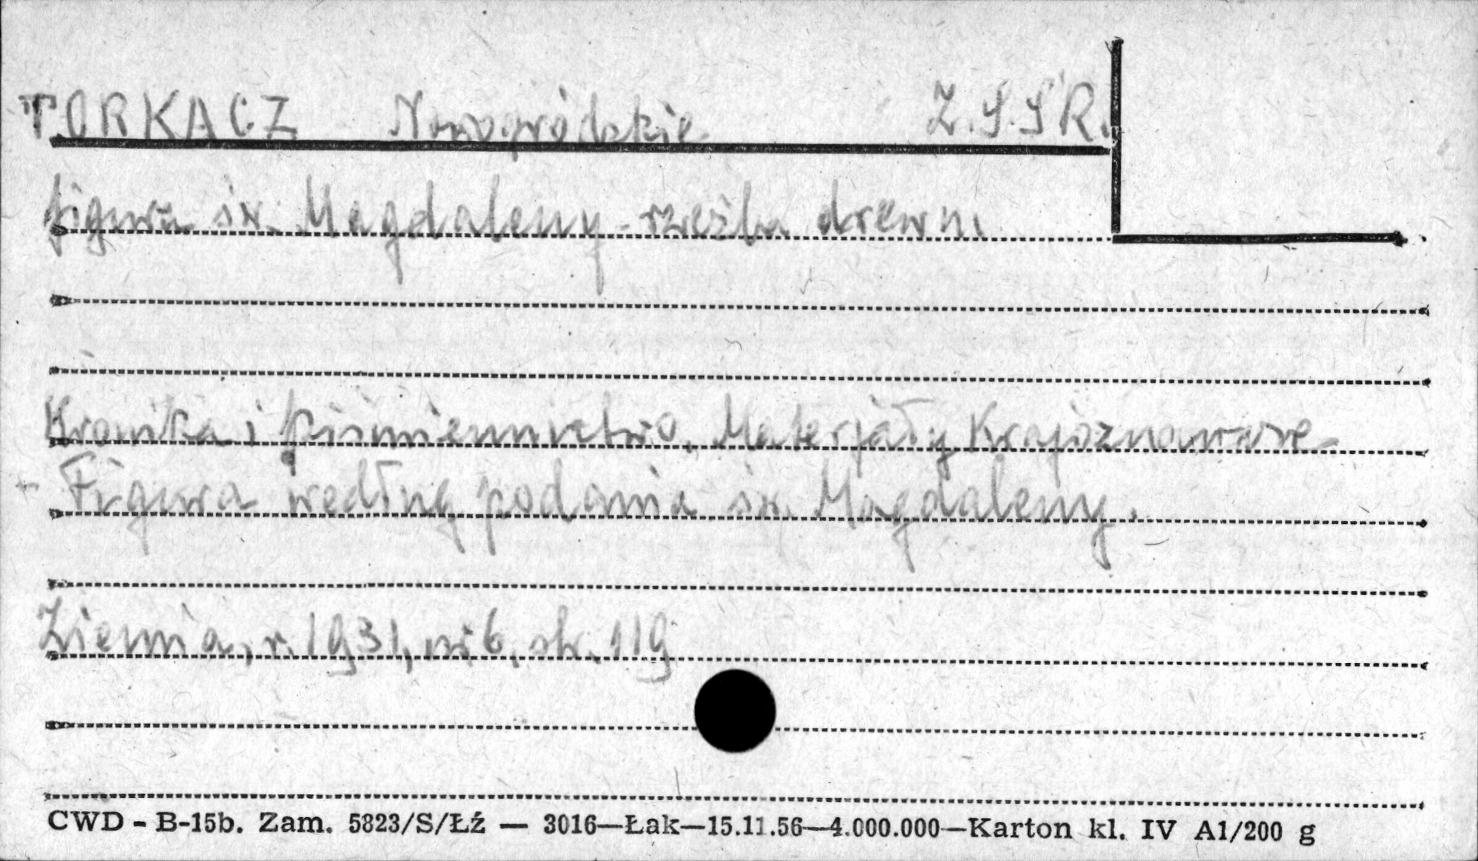 TORKACZ Nowogródzkie Z.S.S.R.
figura św. Magdaleny - rzeźba drewn.
Kronika i piśmiennictwo. Materjały Krajoznawcze
- Figura według podania św. Magdaleny.
Ziemia, r. 1931, nr 6, str. 119
CWD - B-15b. Zam. 5823/S/Łź — 3016—Łak—15.11.56—4.000.000—Karton kl. IV A1/200 g